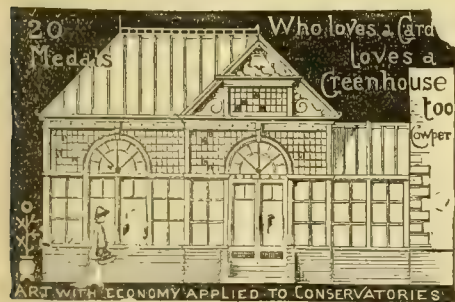 20
Medals
Who loves a Gard
Loves a
Greenhouse
too
Cowper
ART WITH ECONOMY APPLIED TO CONSERVATORIES